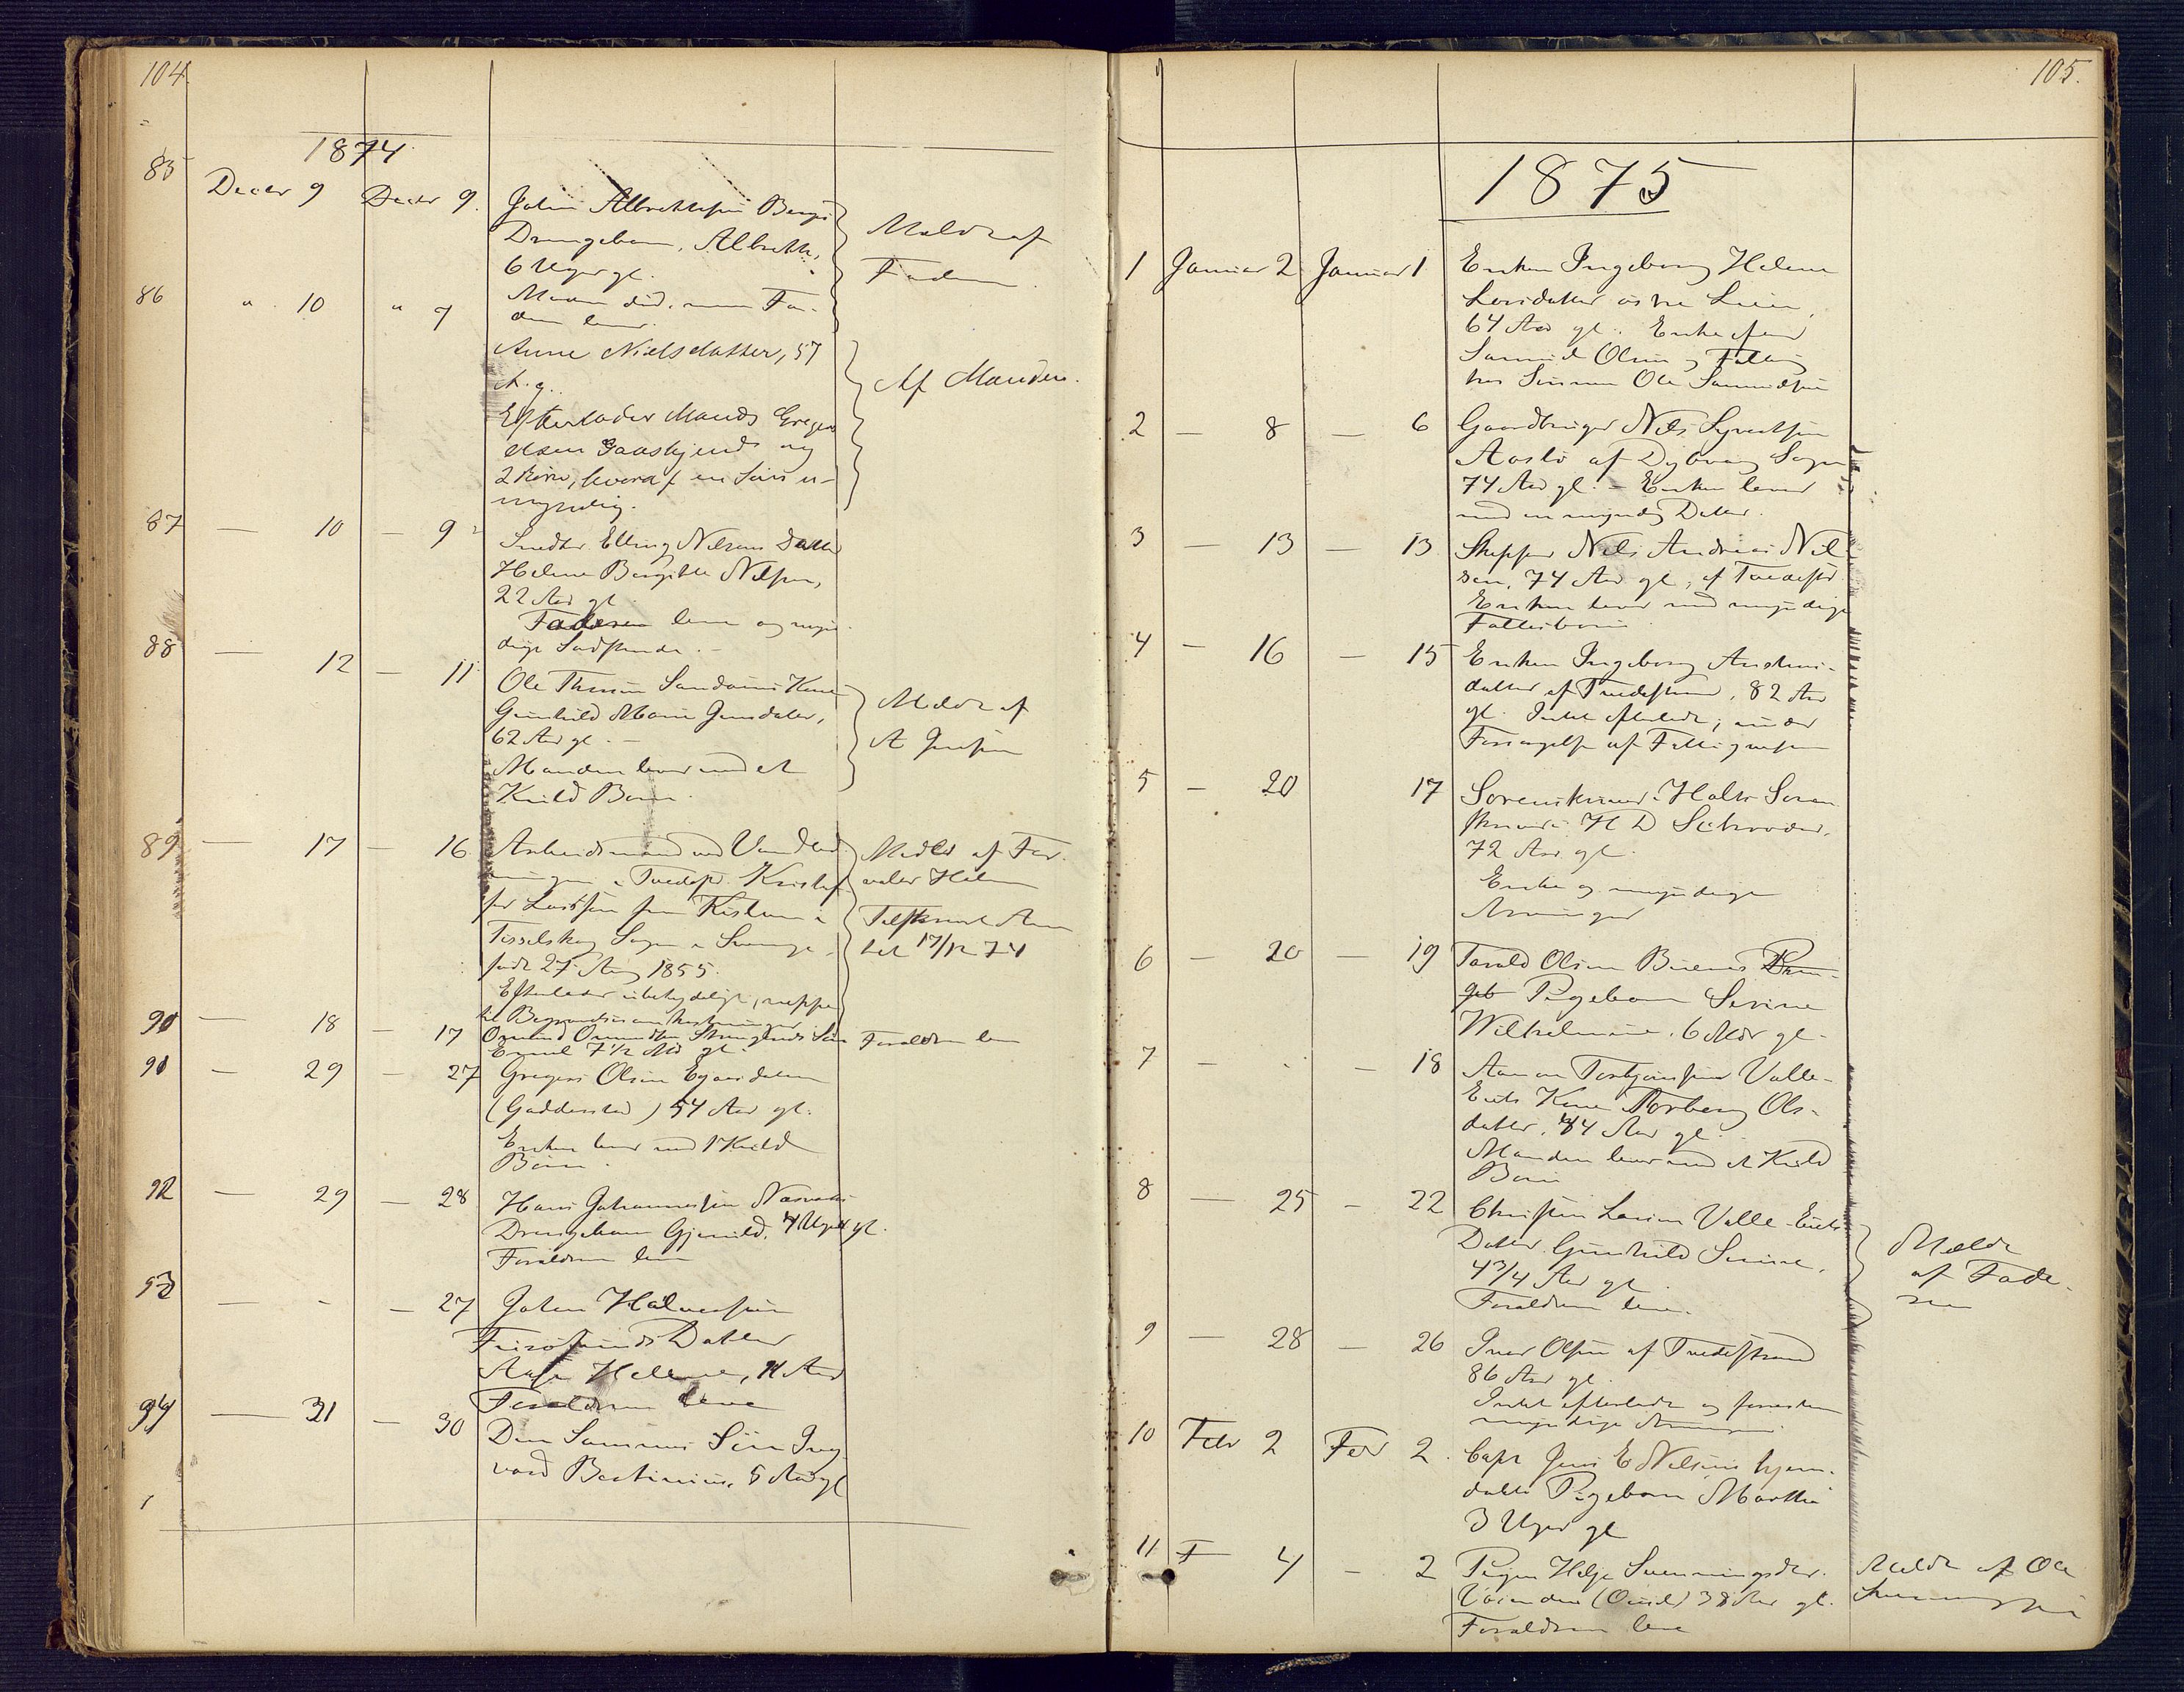 104.
1874
85 Decbr 9 Decbr 9. Johan Albrethsen Bergs
Drengebarn, Albreth,
6 Uger gl.
Meldt af
Faderen.
86 " 10 " 9 Moren død, men Fa-
deren lever.
Anne Nielsdatter, 57
A. g.
Efterlader Mand Greger
Olsen Gaaskjend og
2 Børn, hvoraf en Søn u-
myndig.
Af Manden.
87 — 10 — 9 Snedker Elling Nilsens Datter
Helene Birgitte Nilsen,
22 Aar gl
Faderen lever og myn-
dige Sødskende. -
88 — 12 — 11 Ole Sandøens Kone
Gunhild Marie Jensdatter,
62 Aar gl. —
Manden lever med et
Kuld Børn.
Meldt af
A Jensen
89 — 17 — 16 Arbeidsmand ved Vandled
ningen i Tvedestr. Kristof
fer Larssen fra
Tisselskog Sogn i Sverige,
født 27 Aug 1855.
Efterlader ubetydeligt, neppe
til Begravelsesomkostninger
Meldt af For-
valter Holm
Tilskrevet Am
tet 17/12 74
90 — 18 — 17 Omund Omundsen Strenglids Søn
Emil 7 1/2 Md gl.
Forældrene lever
91 — 29 — 27 Gregers Olsen Egjersdalen
(Goddersted) 54 Aar gl.
Enken lever med 1 Kuld
Børn.
92 — 29 — 28 Hans Johannessen Næsvatns
Drengebarn Gjeruld, 4 Uger gl.
Forældrene lever
93 — - — 27 Johan Halvorsen
Furøsunds Datter
Aase Helene, 11 Aar
Forældrene leve
94 — 31 — 30 Den Sammes Søn Ing
vard Bertinius, 5 Aar gl
105.
1875
1 Januar 2 Januar 1 Enken Ingeborg Helene
Larsdatter østre Lien,
64 Aar gl. Enke efter
Olsen og Fattig
hos Sønnen Ole
2 — 8 — 6 Gaardbruger Nils Syvertsen
Aaslø af Dybvaag Sogn
74 Aar gl. - Enken lever
med en myndig Datter.
3 — 13 — 13 Skipper Nils Andreas Nil
sen, 74 Aar gl, af Tvedestr
Enken lever med myndige
Fællesbørn
4 — 16 — 15 Enken Ingeborg
datter af Tvedestrand, 82 Aar
gl. Intet efterladt; under
Forsørgelse af Fattigvæsen
5 — 20 17 Sorenskriver i Holt Soren
skriver H D Schrøder,
72 Aar gl.
Enke og myndige
Arvinger
6 — 20 — 19 Tarald Olsen Buenes Dren
geb Pigebarn Sevine
Wilhelmine, 6 Mdr gl-
7 - - — 18 Aanon Torbjørnsen Valle-
Eiets Kone Torborg Ols-
datter, 44 Aar gl.
Manden lever med et Kuld
Børn
8 — 25 — 22 Christen Larsen Valle-Eiets
Datter Gunhild Serine,
4 3/4 Aar gl
Forældrene leve.
Meldt
af Fade-
ren
9 — 28 — 26 Iver Olsen af Tvedestrand
86 Aar gl.
Intet efterladt og forresten
myndige Arvinger.
10 Febr 2 Febr 2. Capt Jens E Nelsens hjem-
døbte Pigebarn Marthe
3 Uger gl
11 F 4 — 2 Pigen Helje Svenningsdtr.
(Omd) 38 Aar gl.
Forældrene leve
Meldt af Ole
Svenningsen